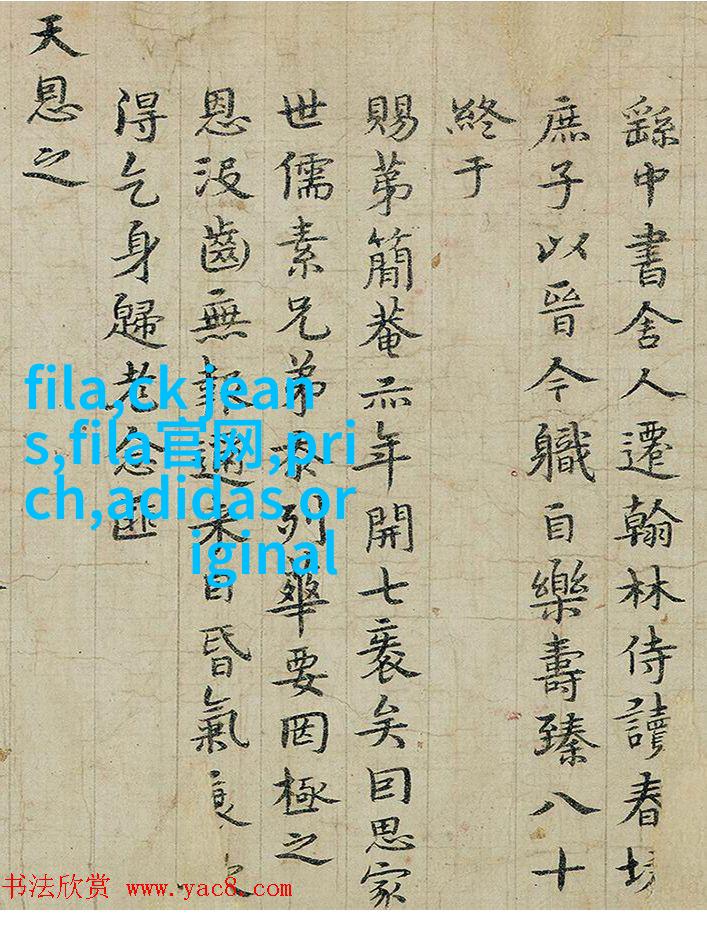 繇中書舍人遷翰林侍讀春坊
庶子以晉今職自樂壽臻八十
終于
賜第簡菴亦年開七袠矣囙思家
世儒素兄弟忝列華要罔極之
恩沒齒無報邇来目昏氣衰
得乞身歸老念匪
天恩之
fila,ck jean
s,fila官网,pri
ch,adidas,or
iginal
书法欣赏 www.yac8.com